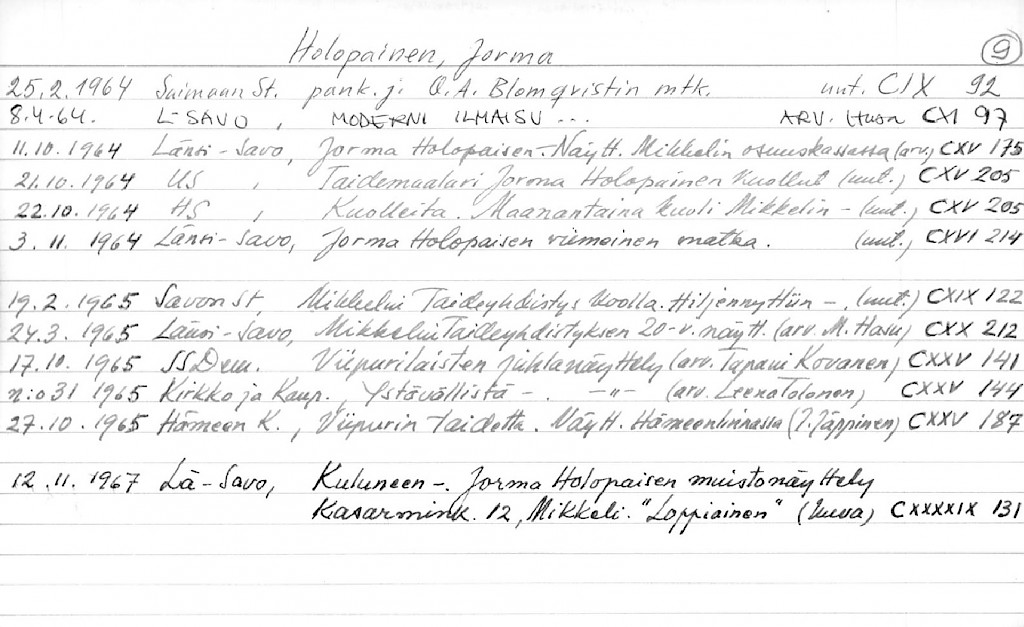 Holopainen, Jorma 9
25.2.1964 Saimaan St. pank.j. O.A. Blomqvistin mtk. uut. CIX 92
8.4-64. L-SAVO, MODERNI ILMAISU ... ARV. Husa CXI 97
11.10.1964 Länsi-Savo, Jorma Holopaisen-. Näytt. Mikkelin osuuskassassa (arv.) CXV 175
21.10.1964 US, Taidemaalari Jorma Holopainen kuollut (uut.) CXV 205
22.10.1964 HS, Kuolleita. Maanantaina kuoli Mikkelin - (uut.) CXV 205
3.11.1964 Länsi-Savo, Jorma Holopaisen viimeinen matka. (uut.) CXVI 214
19.2.1965 Savon St, Mikkelin Taideyhdistys koolla. Hiljennyttiin -. (uut.) CXIX 122
24.3.1965 Länsi-Savo, Mikkelin Taideyhdistyksen 20-v. näytt. (arv. M. Hasu) CXX 212
17.10.1965 SSDem. Viipurilaisten juhlanäyttely (arv. Tapani Kovanen) CXXV 141
n:o 31 1965 Kirkko ja Kaup., Ystävällistä -. -"- (arv. Leena Tolonen) CXXV 144
27.10.1965 Hämeen K., Viipurin taidetta. Näytt. Hämeenlinnassa (J. Jäppinen) CXXV 187
12.11.1967 Lä-Savo, Kuluneen -. Jorma Holopaisen muistonäyttely
Kasarmink. 12, Mikkeli. "Loppiainen" (kuva) CXXXXIX 131